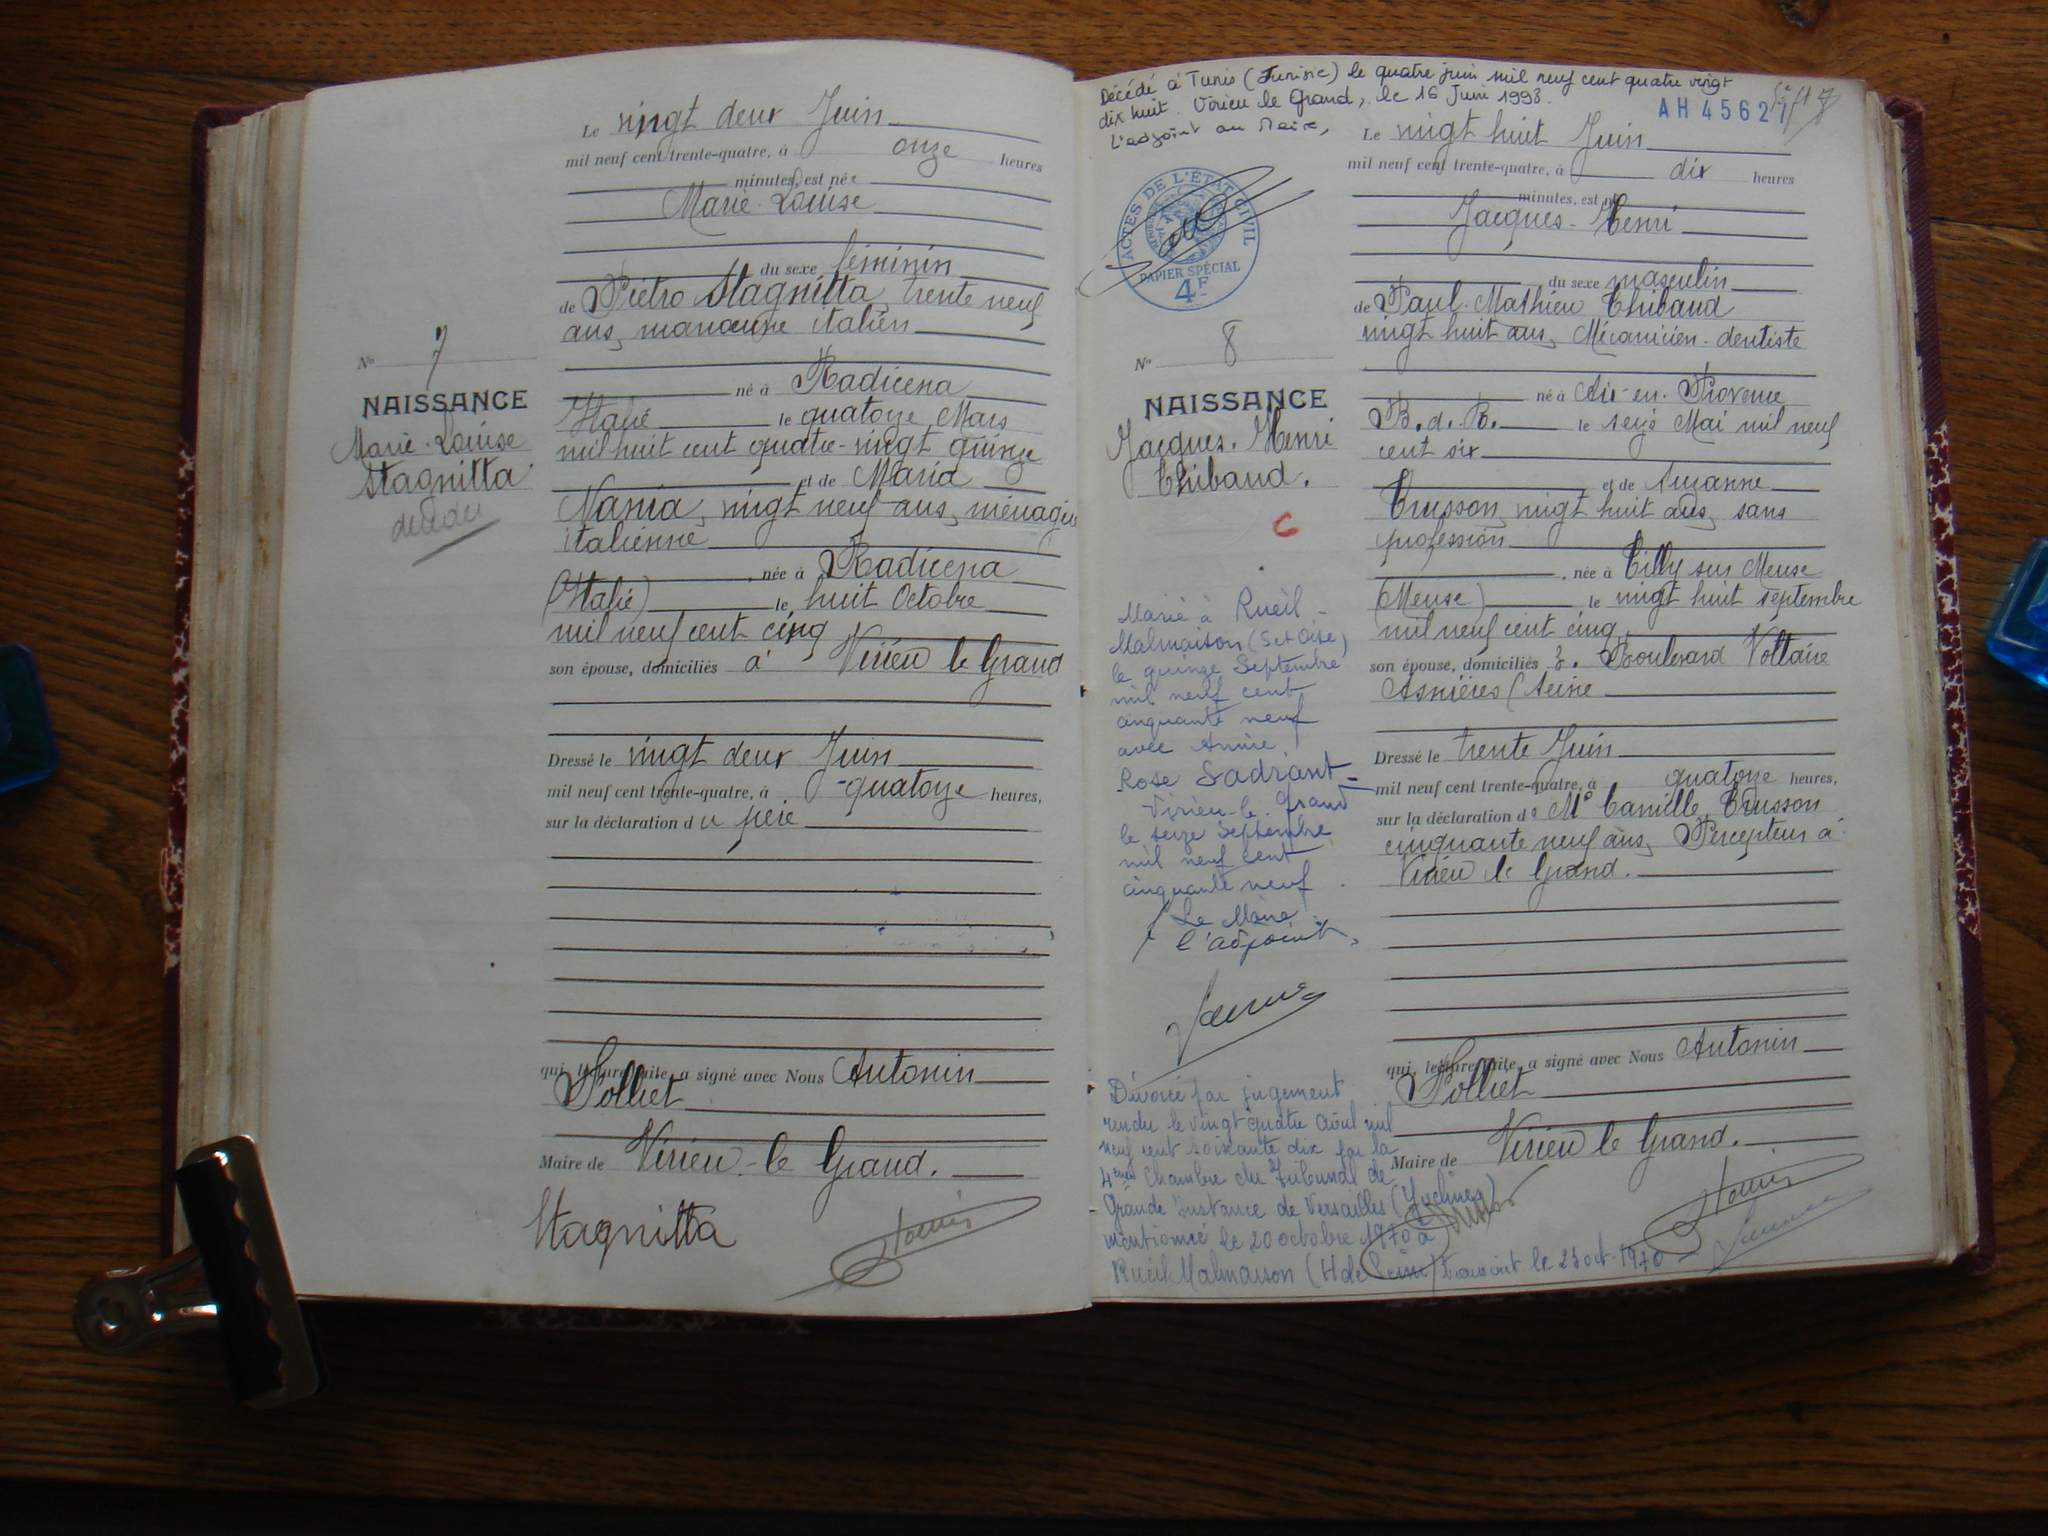 Le vingt deux Juin
mil neuf cent trente-quatre, à onze heures
minutes, est née
Marie-Louise
du sexe féminin
de Piétro Stagnitta, trente neuf
ans, manœuvre italien
né à Radicena
Italie le quatorze Mars
mil huit cent quatre-vingt quinze
et de Maria
Nania, vingt neuf ans, ménagère
italienne
, née à Radicena
(Italie) le huit Octobre
mil neuf cent cinq
son épouse, domiciliés à Virieu le Grand
Dressé le vingt deux Juin
mil neuf cent trente-quatre, à quatorze heures,
sur la déclaration du père
qui, lecture faite, a signé avec Nous Antonin
Polliet
Maire de Virieu-le Grand.
Stagnitta
No 7
NAISSANCE
Marie-Louise
Stagnitta
décédée
Décédé à Tunis (Tunisie) le quatre juin mil neuf cent quatre vingt
dix huit. Virieu le Grand, le 16 Juin 1998.
L'adjoint au Maire,
AH 4562
ACTES DE L'ÉTAT CIVIL
PAPIER SPÉCIAL
4F
No 8
NAISSANCE
Jacques-Henri
Thibaud.
C
Marié à Rueil-
Malmaison (S et Oise)
le quinze Septembre
mil neuf cent
cinquante neuf
avec Annie,
Rose Sadriant-
Virieu-le-Grand
le seize Septembre
mil neuf cent
cinquante neuf
Le Maire
l'adjoint,
Divorcé par jugement
rendu le vingt quatre août mil
neuf cent soixante dix par la
4ème Chambre du Tribunal de
Grande Instance de Versailles (Yvelines)
mentionné le 20 octobre 1970 à
Rueil Malmaison (H de Seine) transcrit le 23 oct. 1970
Le vingt huit Juin
mil neuf cent trente-quatre, à dix heures
minutes, est né
Jacques-Henri
du sexe masculin
de Paul-Mathieu Thibaud
vingt huit ans, Mécanicien-dentiste
né à Aix-en-Provence
B.d.R. le seize Mai mil neuf
cent six
et de Suzanne
Trusson, vingt huit ans, sans
profession
, née à Tilly sur Meuse
(Meuse) le vingt huit septembre
mil neuf cent cinq
son épouse, domiciliés 3. Boulevard Voltaire
Asnières (Seine
Dressé le trente Juin
mil neuf cent trente-quatre, à quatorze heures,
sur la déclaration de Mr Camille Trusson
cinquante neuf ans, Percepteur à
Virieu le Grand.
qui, lecture faite, a signé avec Nous Antonin
Polliet
Maire de Virieu le Grand.